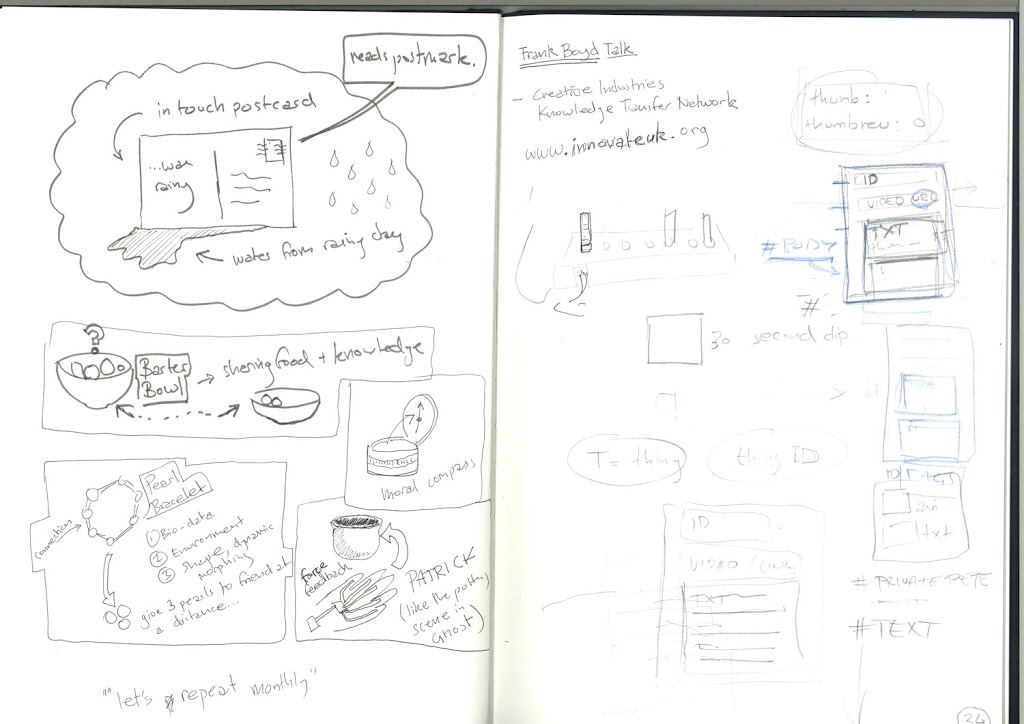 reads postmark.
in touch postcard
...was
rainy
water from rainy day
Barter
Bowl
→ sharing food + knowledge
moral compass
Pearl
Bracelet
connection
① Bio-data
② Environment
③ Shape dynamic
morphing
give 3 pearls to friend at
a distance...
force
feedback
PATRICK
(like the pottery
scene in
Ghost)
""let's repeat monthly"
Frank Boyd Talk
- Creative Industries
Knowledge Transfer Network
www.innovateuk.org
thumb:
ID
VIDEO
TXT
#BODY
#
30 second dip.
id
T= thing
thing ID
ID TAGS
avi
txt
ID
VIDEO / LINK
TXT
#TEXT
24